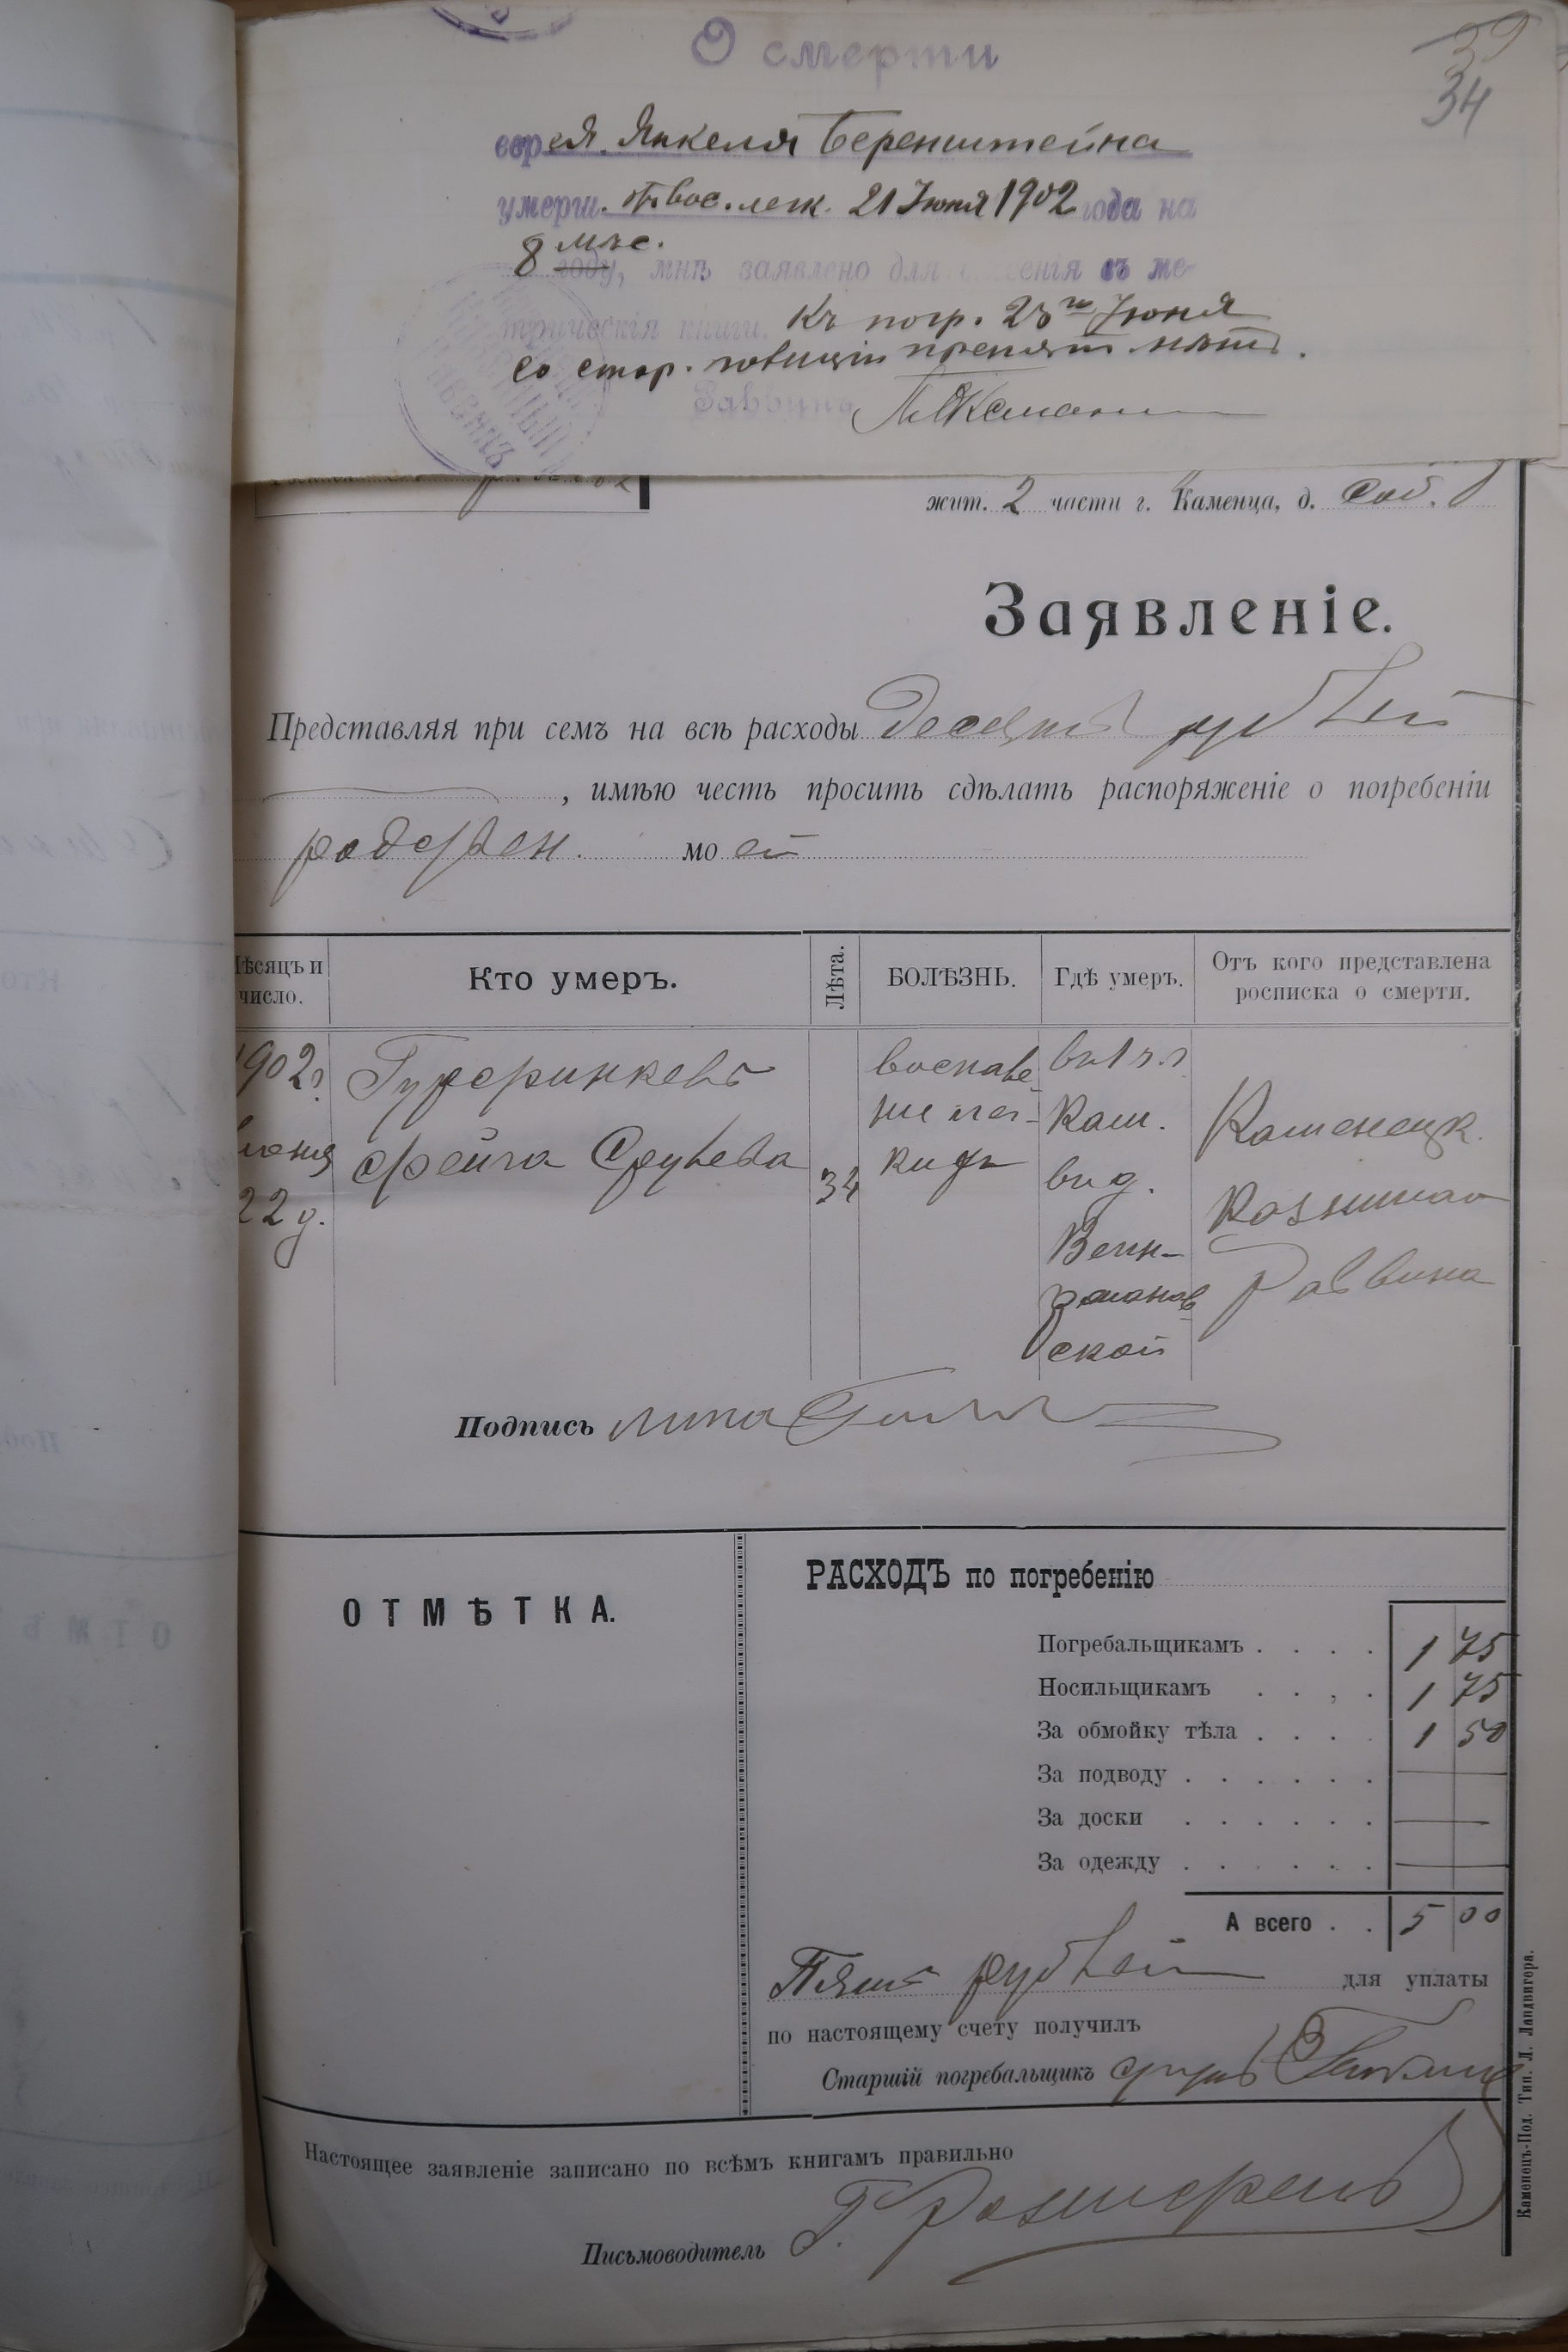 О смерти
39
34
еврея Янкеля Беренштейна
умерш. от вос. легк. 21 Іюня 1902 года на
8 мѣс.
году, мнѣ заявлено для сенія въ ме-
трическія книги. Къ погр. 23го Іюня
со стор. препят. нѣтъ.
Раввинъ
жит. 2 части г. Каменца, д. Соб.
Заявленіе.
Представляя при семъ на всѣ расходы десять рублей
, имѣю честь просить сдѣлать распоряженіе о погребеніи
мо ей
Мѣсяцъ и число.
Кто умеръ.
Лѣта.
БОЛѢЗНЬ.
Гдѣ умеръ.
Отъ кого представлена росписка о смерти.
1902 г.
Іюня
22 д.
Фейга Срулева
34
воспале-
ніе лег-
кихъ
Кам.
въ д.
Вейн-
ской
Каменецк.
Казеннаго
Раввина
Подпись
ОТМѢТКА.
РАСХОДЪ по погребенію
Погребальщикамъ . . . . 1 75
Носильщикамъ . . , . 1 75
За обмойку тѣла . . . . 1 50
За подводу . . . . . . —
За доски . . . . . . —
За одежду . . . . . . —
А всего . . 5 00
Пять рублей для уплаты
по настоящему счету получилъ
Старшій погребальщикъ
Настоящее заявленіе записано по всѣмъ книгамъ правильно
Письмоводитель
Каменецъ-Под. Тип. Л. Ландвигера.